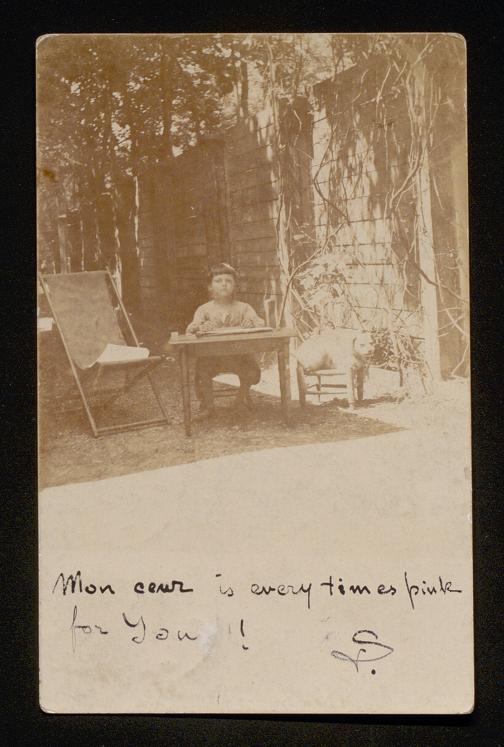 Mon cœur is every times pink
for You !!
S.